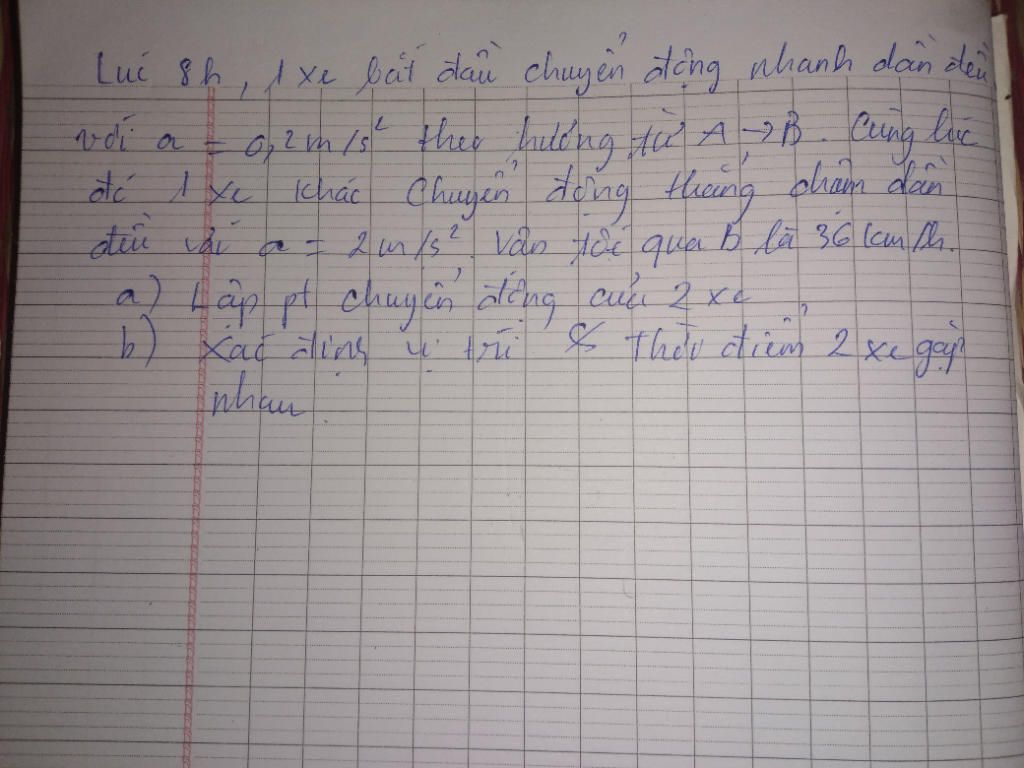 Lúc 8h, 1 xe bắt đầu chuyển động nhanh dần đều
với a = 0,2m/s² theo hướng từ A → B. Cùng lúc
đó 1 xe khác chuyển động thẳng chậm dần
đều với a = 2m/s². Vận tốc qua B là 36 km/h.
a) Lập pt chuyển động của 2 xe
b) Xác định vị trí & thời điểm 2 xe gặp
nhau